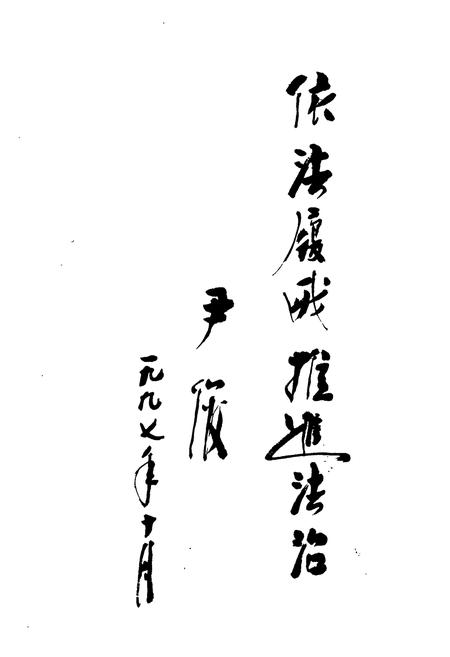 依法履职 推進法治
尹俊
一九九七年十月